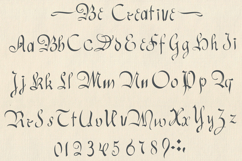 ~Be Creative~
Aa Bb Cc Dd Ee Ff Gg Hh Ii
Jj Kk Ll Mm Nn Oo Pp Qq
Rr Ss Tt Uu Vv Ww Xx Yy Zz
0123456789.:,